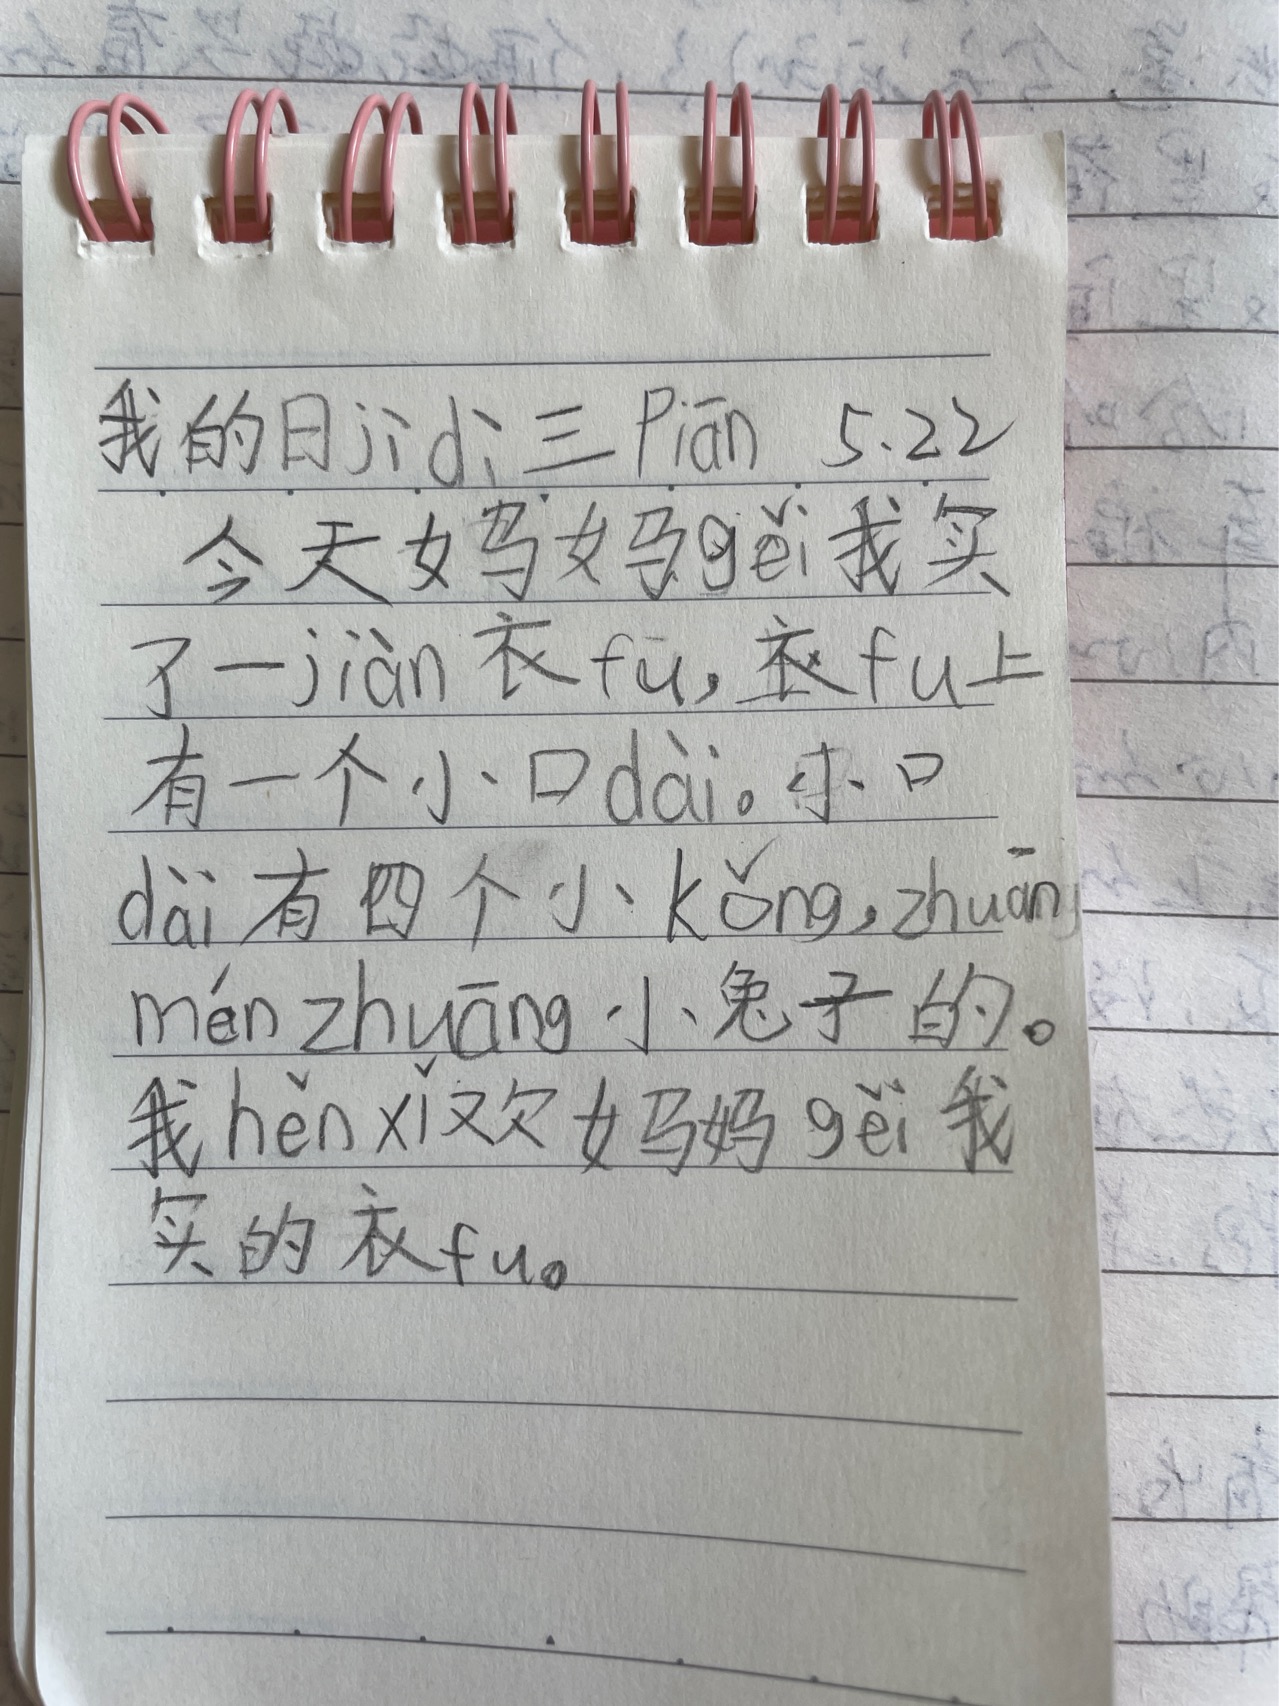 我的日jì dì 三 Piān 5.22
今天妈妈gěi我买
了一jiàn 衣 fū，衣 fu 上
有一个小口dài。小口
dài 有四个小 kǒng，zhuān
mén zhuāng 小兔子的。
我 hěn xǐ 欢妈妈 gěi 我
买的衣 fu。